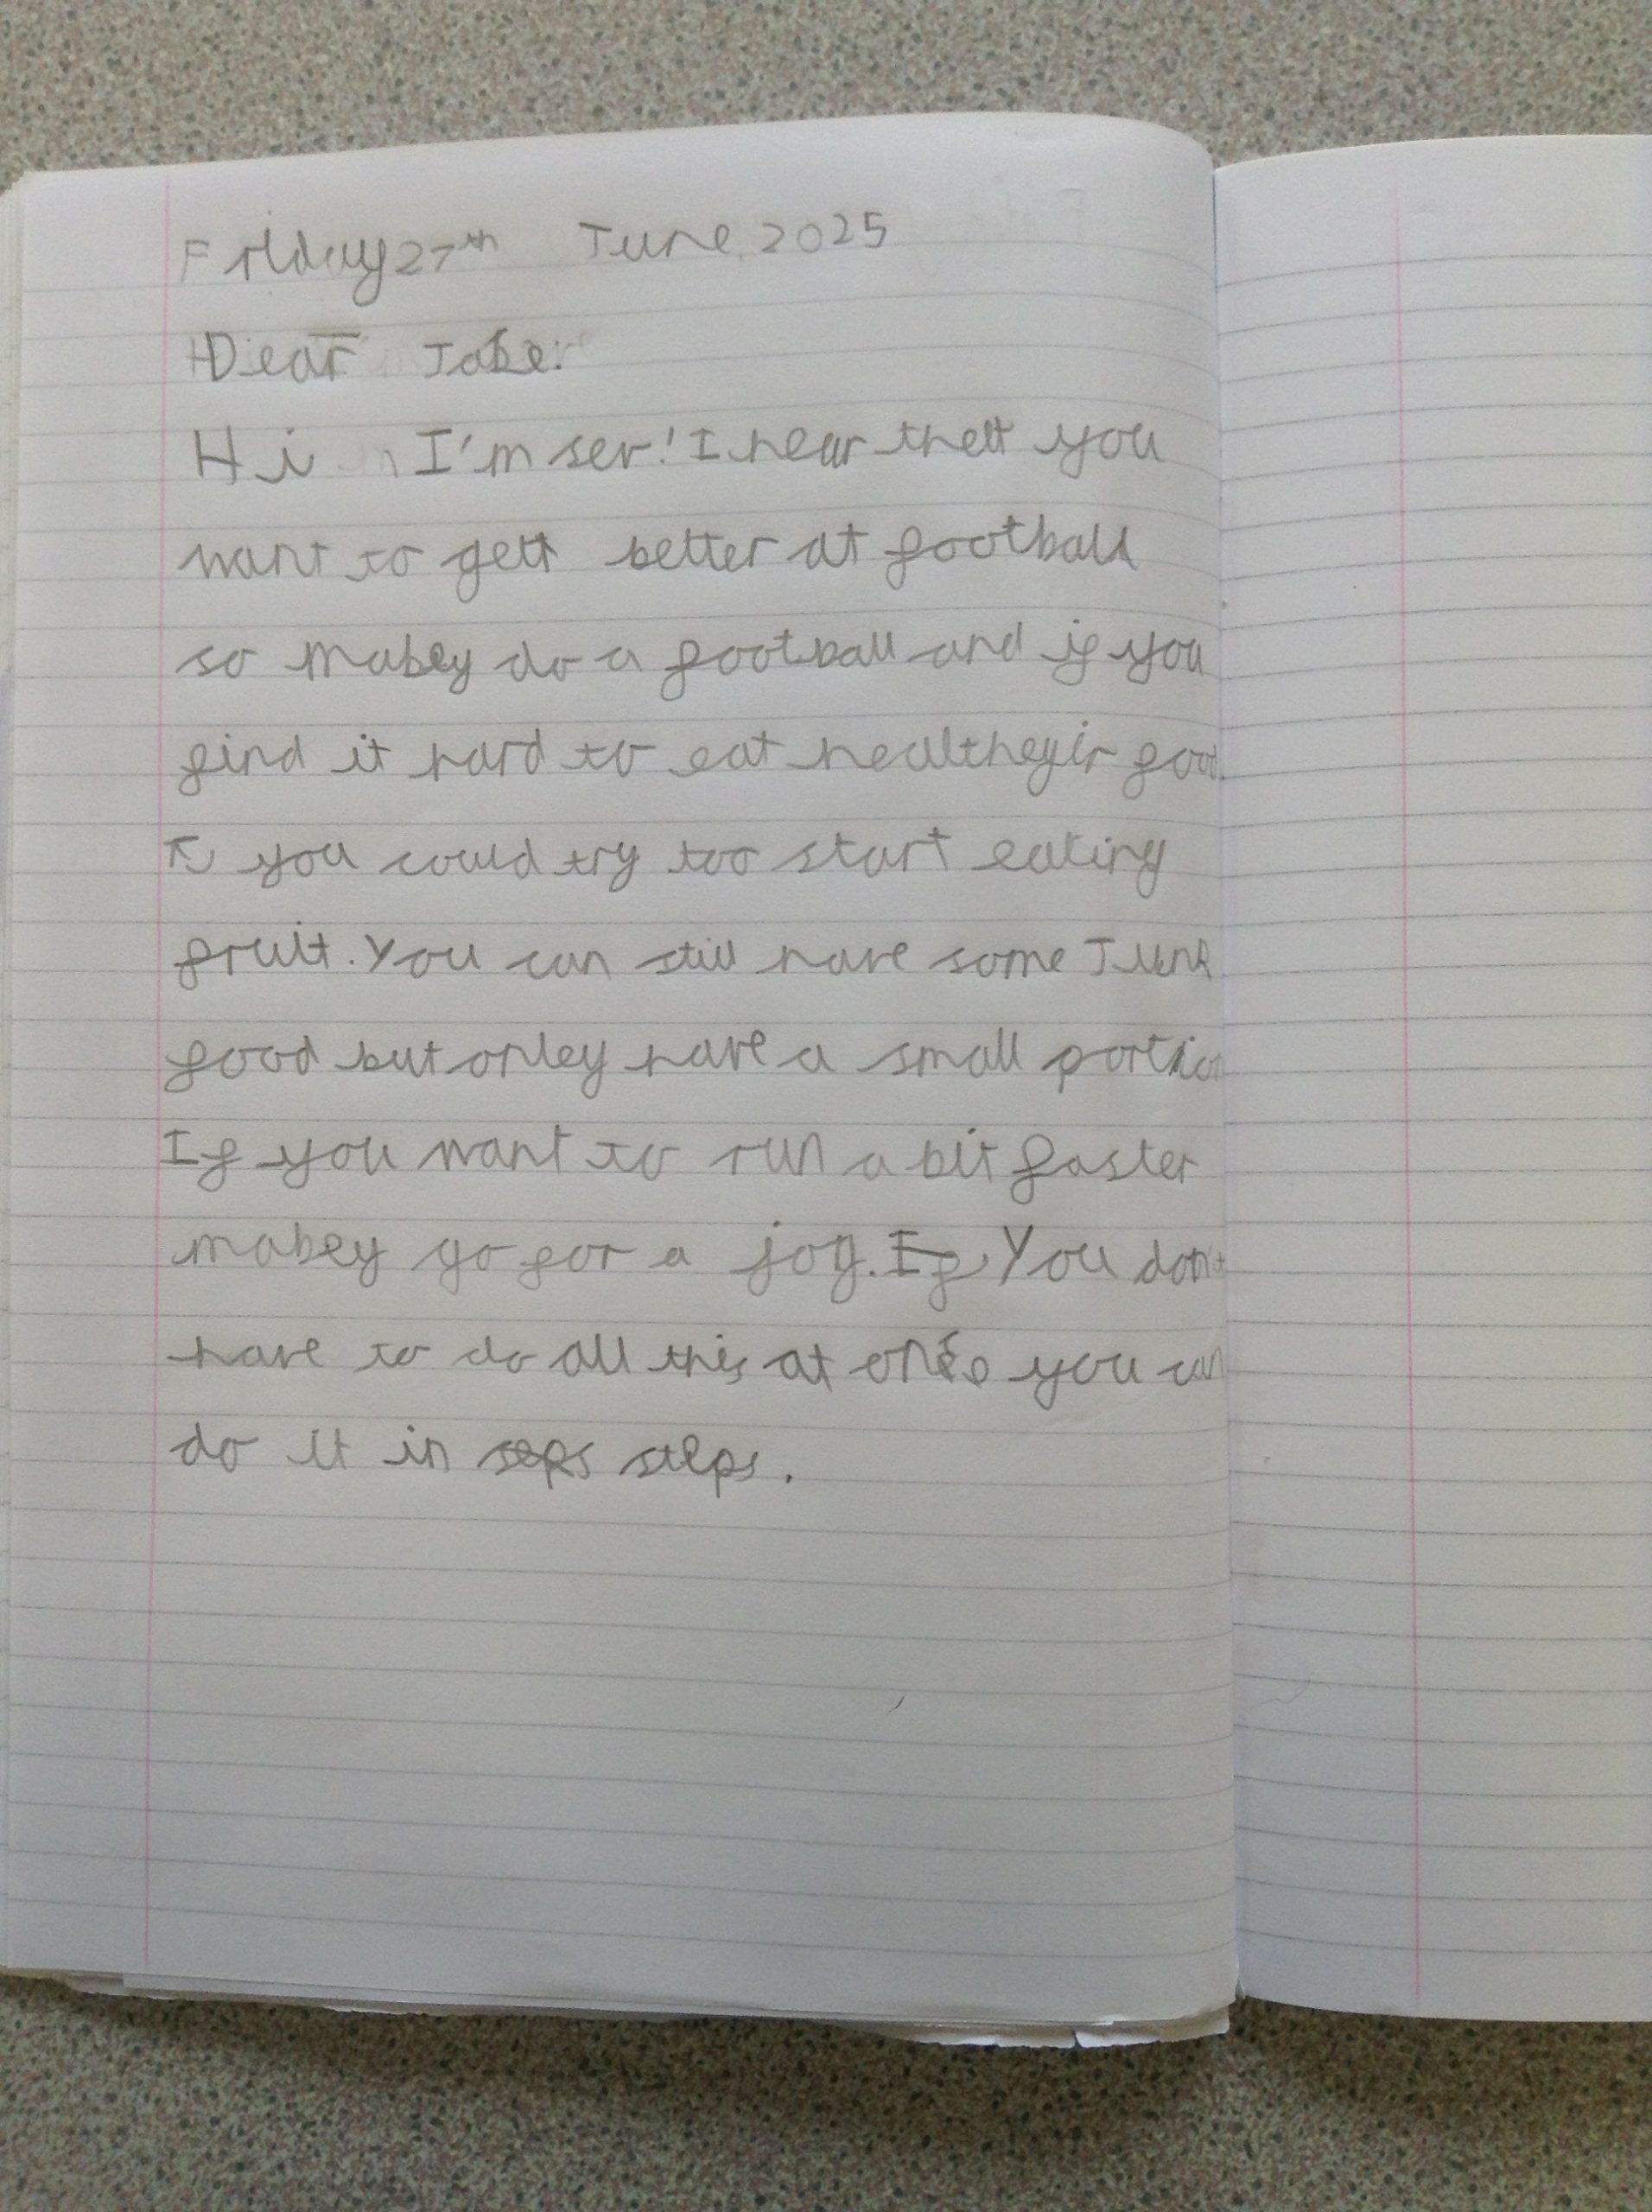 Friday 27th June 2025
Dear Jobe.
Hi I'm sev! I hear thett you
want to gett better at football
so mabey do a football and if you
find it hard to eat healtheyir food
you could try too start eating
fruit. You can still have some Junk
food but onley have a small portion
If you want to run a bit faster
mabey go for a jog. If You don't
have to do all this at once you can
do it in seps steps.